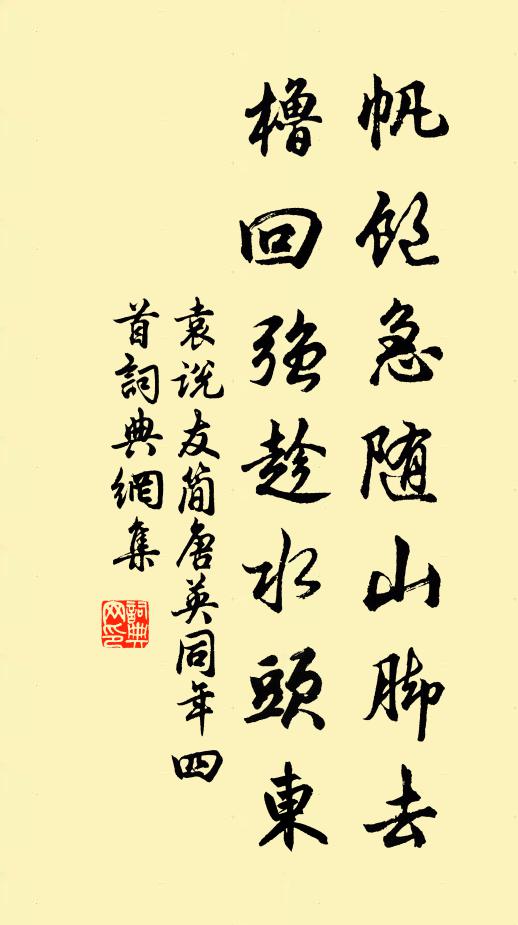 帆飽急随山脚去
櫓回強趁水頭東
袁說友簡唐英同年四
首詞典網集
詞典网印